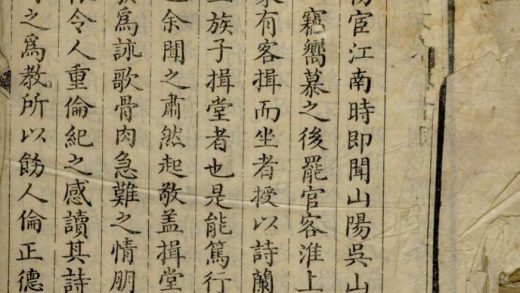 宦江南時即聞山陽吳山
竊嚮慕之後罷官客淮上
有客揖而坐者授以詩蘭
族子揖堂者也是能篤行
之余聞之肅然起敬盖揖堂
為詠歌骨肉急難之情朋
令人重倫紀之感讀其詩
之為教所以飭人倫正德